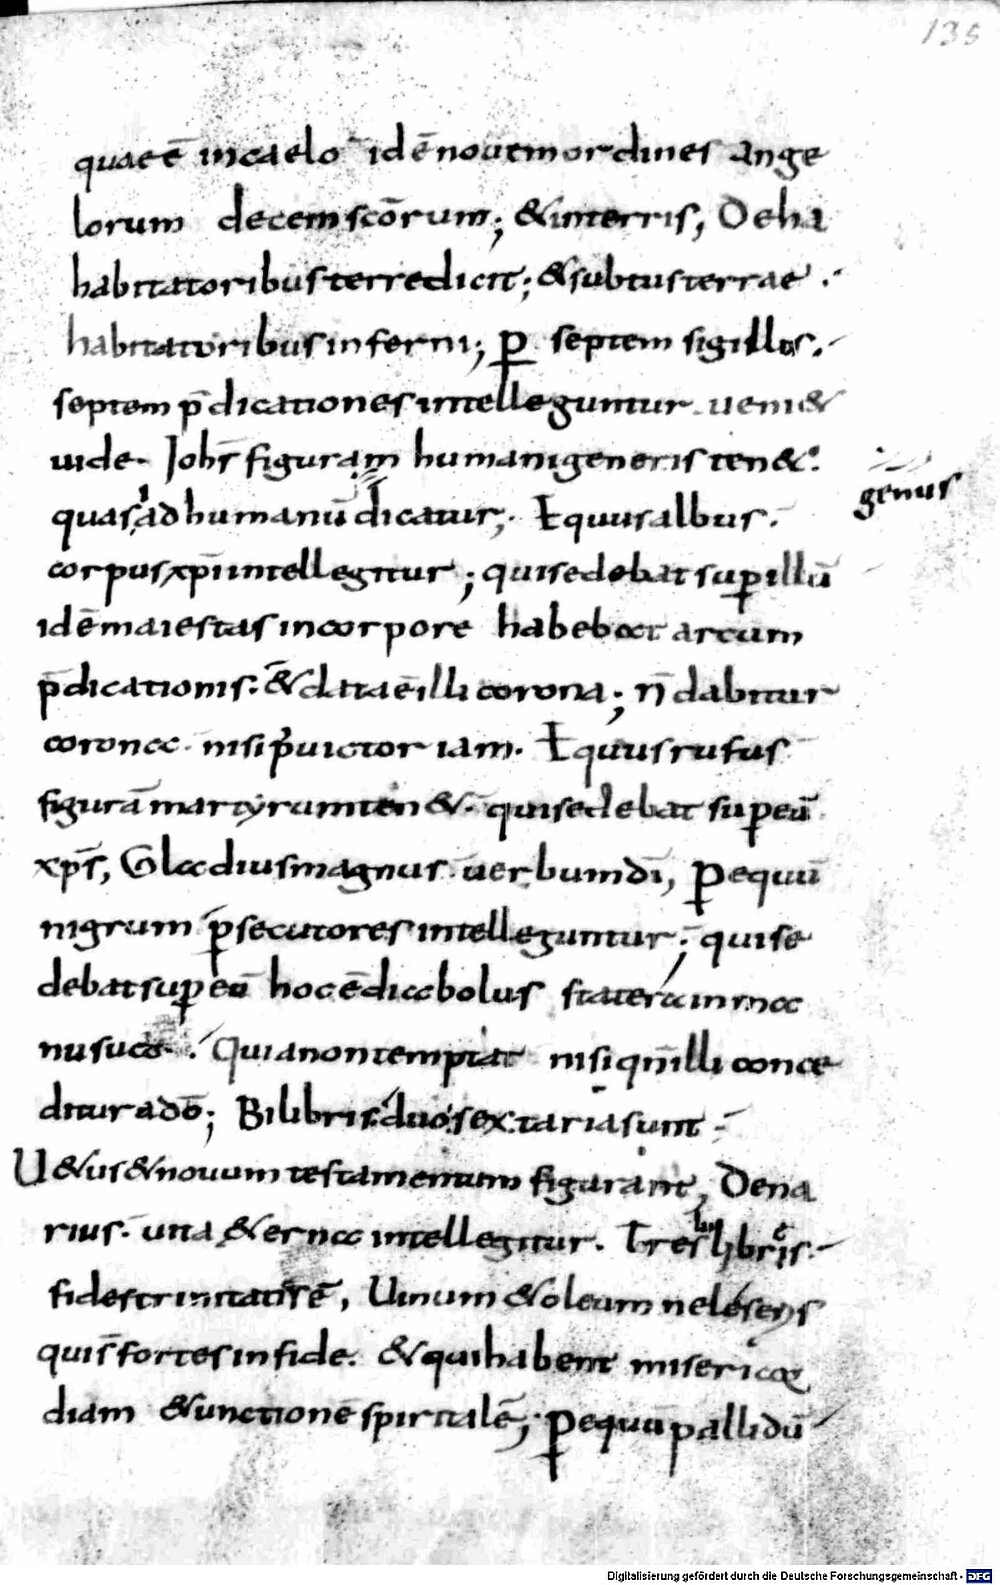 135
quae ē in caelo id ē novem ordines ange
lorum decem scōrum; & in terris, De ha
habitatoribus terre dicit; & subtus terrae .
habitatoribus inferni; ꝑ septem sigillos.
septem p̄dicationes intelleguntur. veni &
uide. Joh̄s figuram humani generis ten&.
genus
quas ad humanū dicatur; Equus albus.
corpus xp̄i intellegitur; qui sedebat suꝑ illū
id ē maiestas in corpore habebat arcum
p̄dicationis. & data ē illi corona; n̄ dabitur
corona. nisi p̄ victoriam. Equus rufus
figurā martyrum ten&. qui sedebat suꝑ eū
xp̄s, Gladius magnus verbum dī, Ꝑ equū
nigrum ꝑsecutores intelleguntur; qui se
debat suꝑ eū hoc ē diabolus statera in ma
nu sua. Quia non temptat nisi qn̄ illi conce
ditur a dō; Bilibris duo sextaria sunt
U&us & novum testamentum figurant, Dena
rius. vita &erna intellegitur. Tres bilibres.
fides trinitatis ē, Uinum & oleum ne leseris
qui s̄ fortes in fide. & qui habent misericor
diam & unctionē spiritalē; Ꝑ equū pallidū
Digitalisierung gefördert durch die Deutsche Forschungsgemeinschaft - DFG